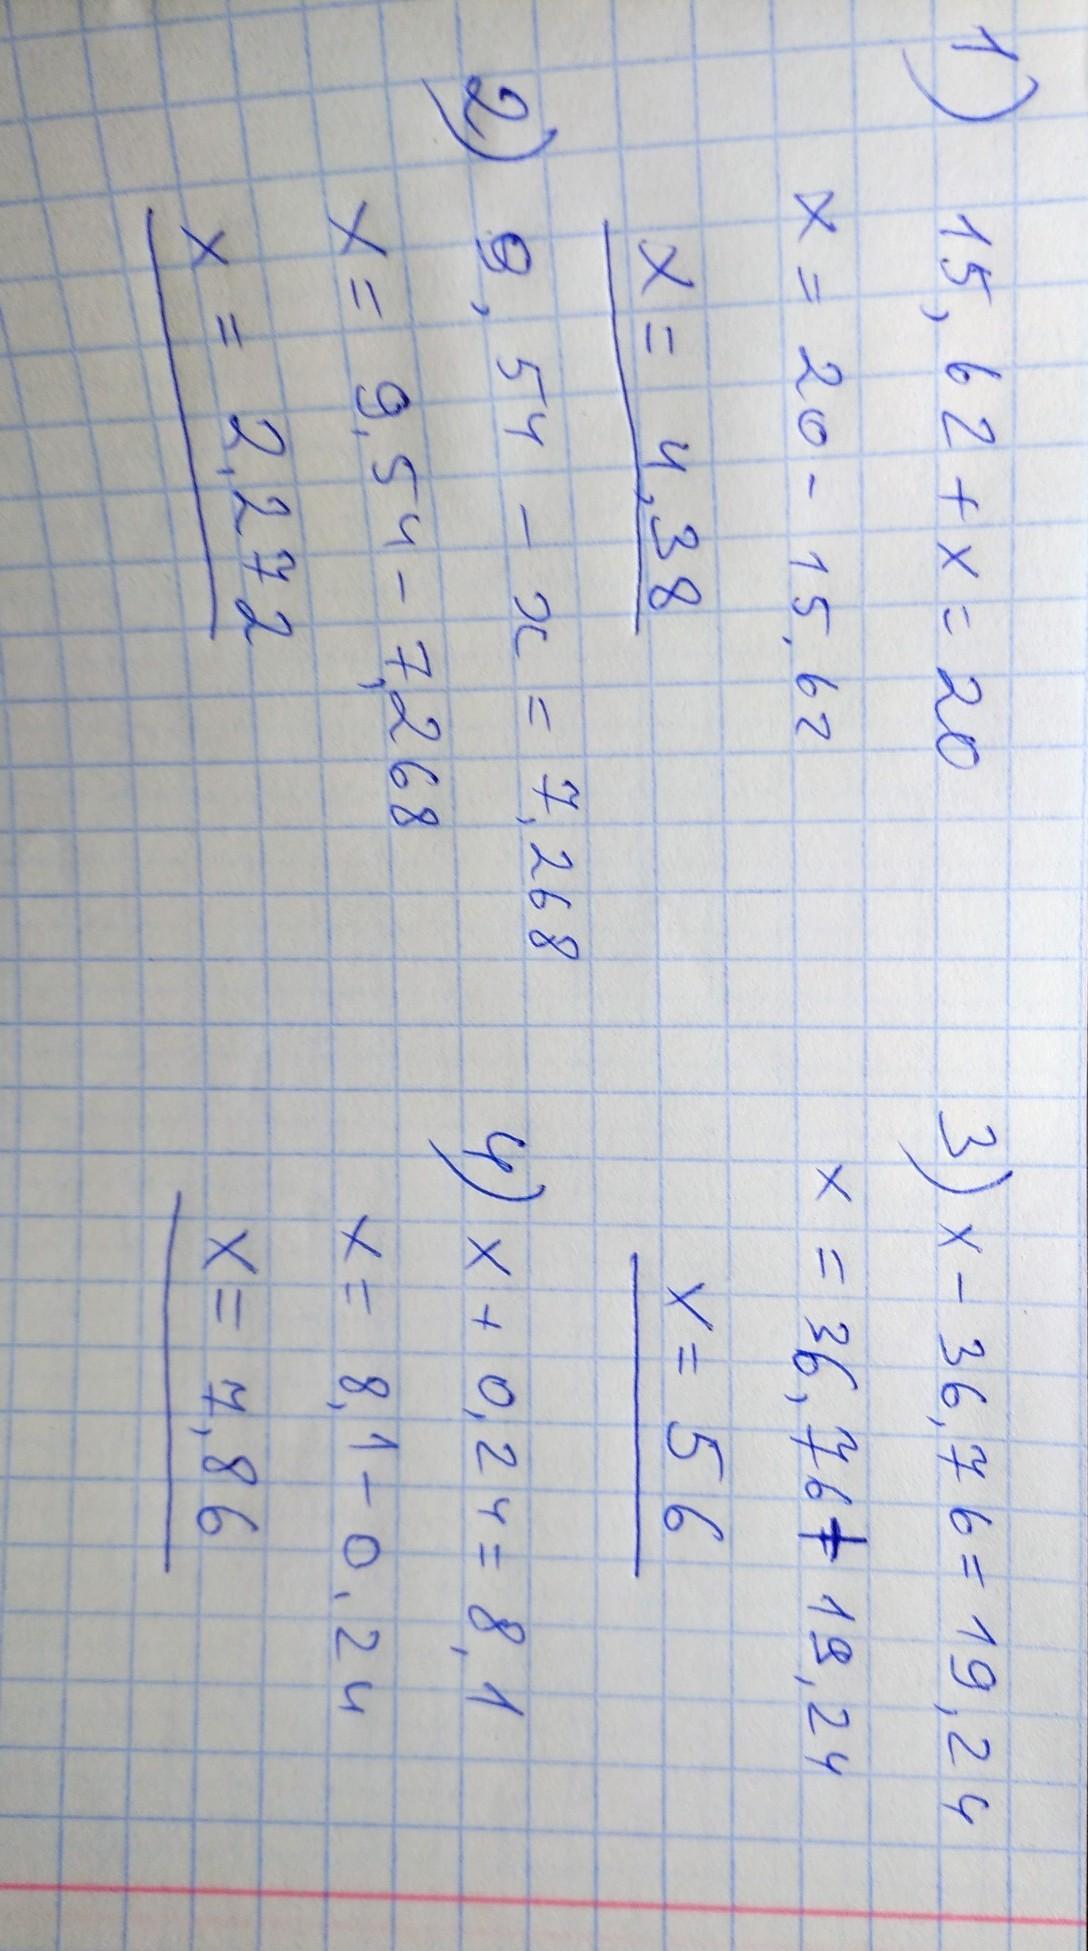 1) 15,62 + x = 20
x = 20 - 15,62
x = 4,38
2) 9,54 - x = 7,268
x = 9,54 - 7,268
x = 2,272
3) x - 36,76 = 19,24
x = 36,76 + 19,24
x = 56
4) x + 0,24 = 8,1
x = 8,1 - 0,24
x = 7,86